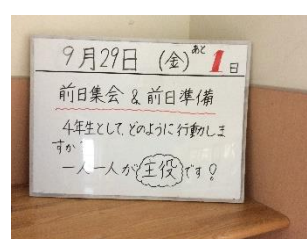 9月29日 (金) あと1日
前日集会 & 前日準備
4年生として、どのように行動しま
すか?
一人一人が主役です!